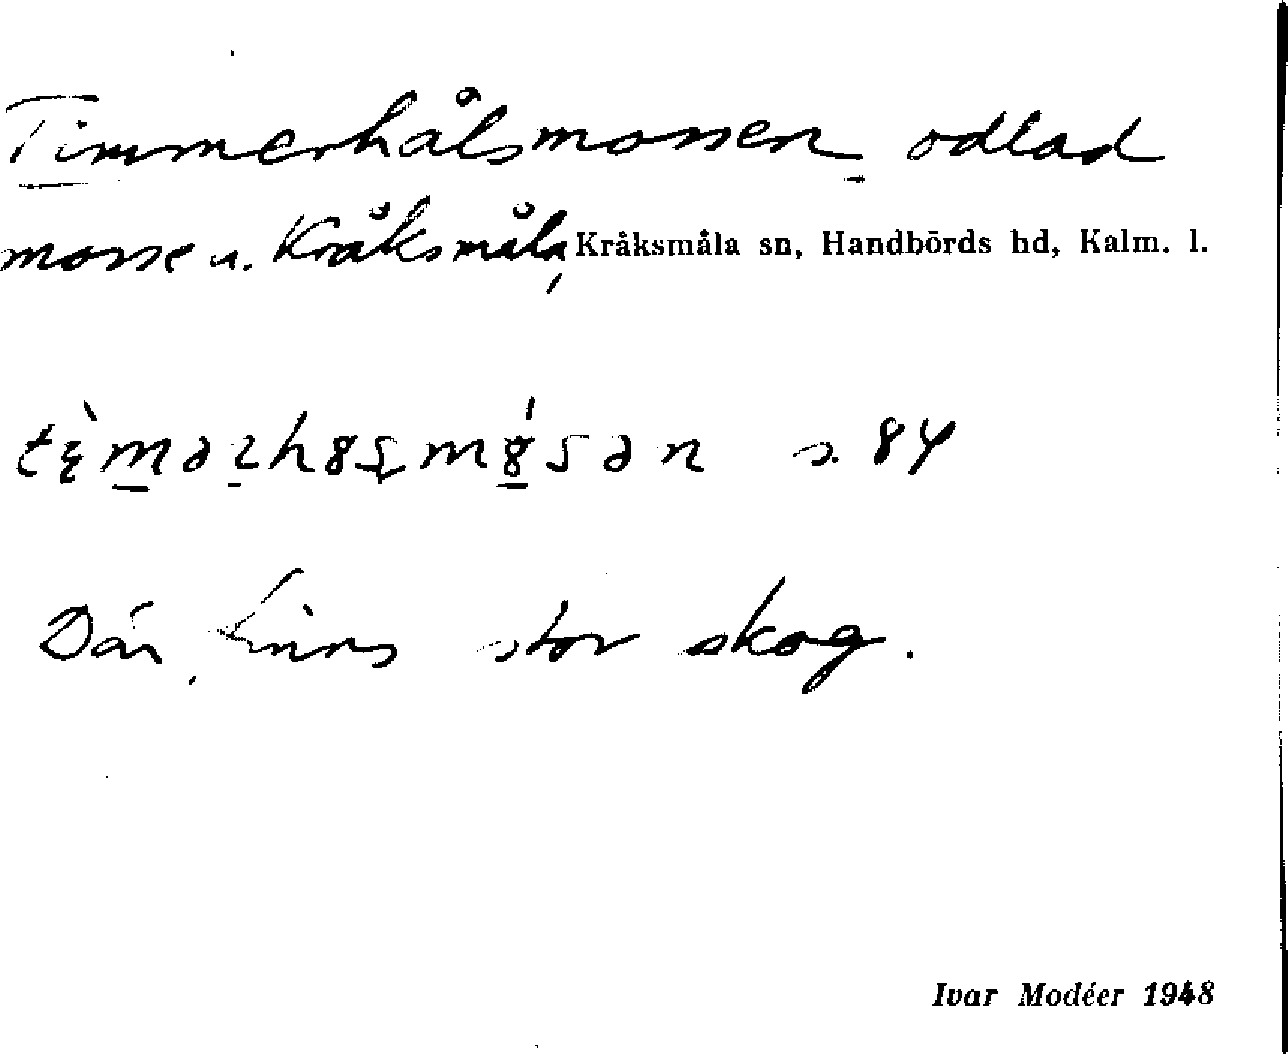 Timmerhålsmossen odlad
mosse u. Kråksmåla, Kråksmåla sn, Handbörds hd, Kalm. l.
s. 84
Där finns stor skog.
Ivar Modéer 1948